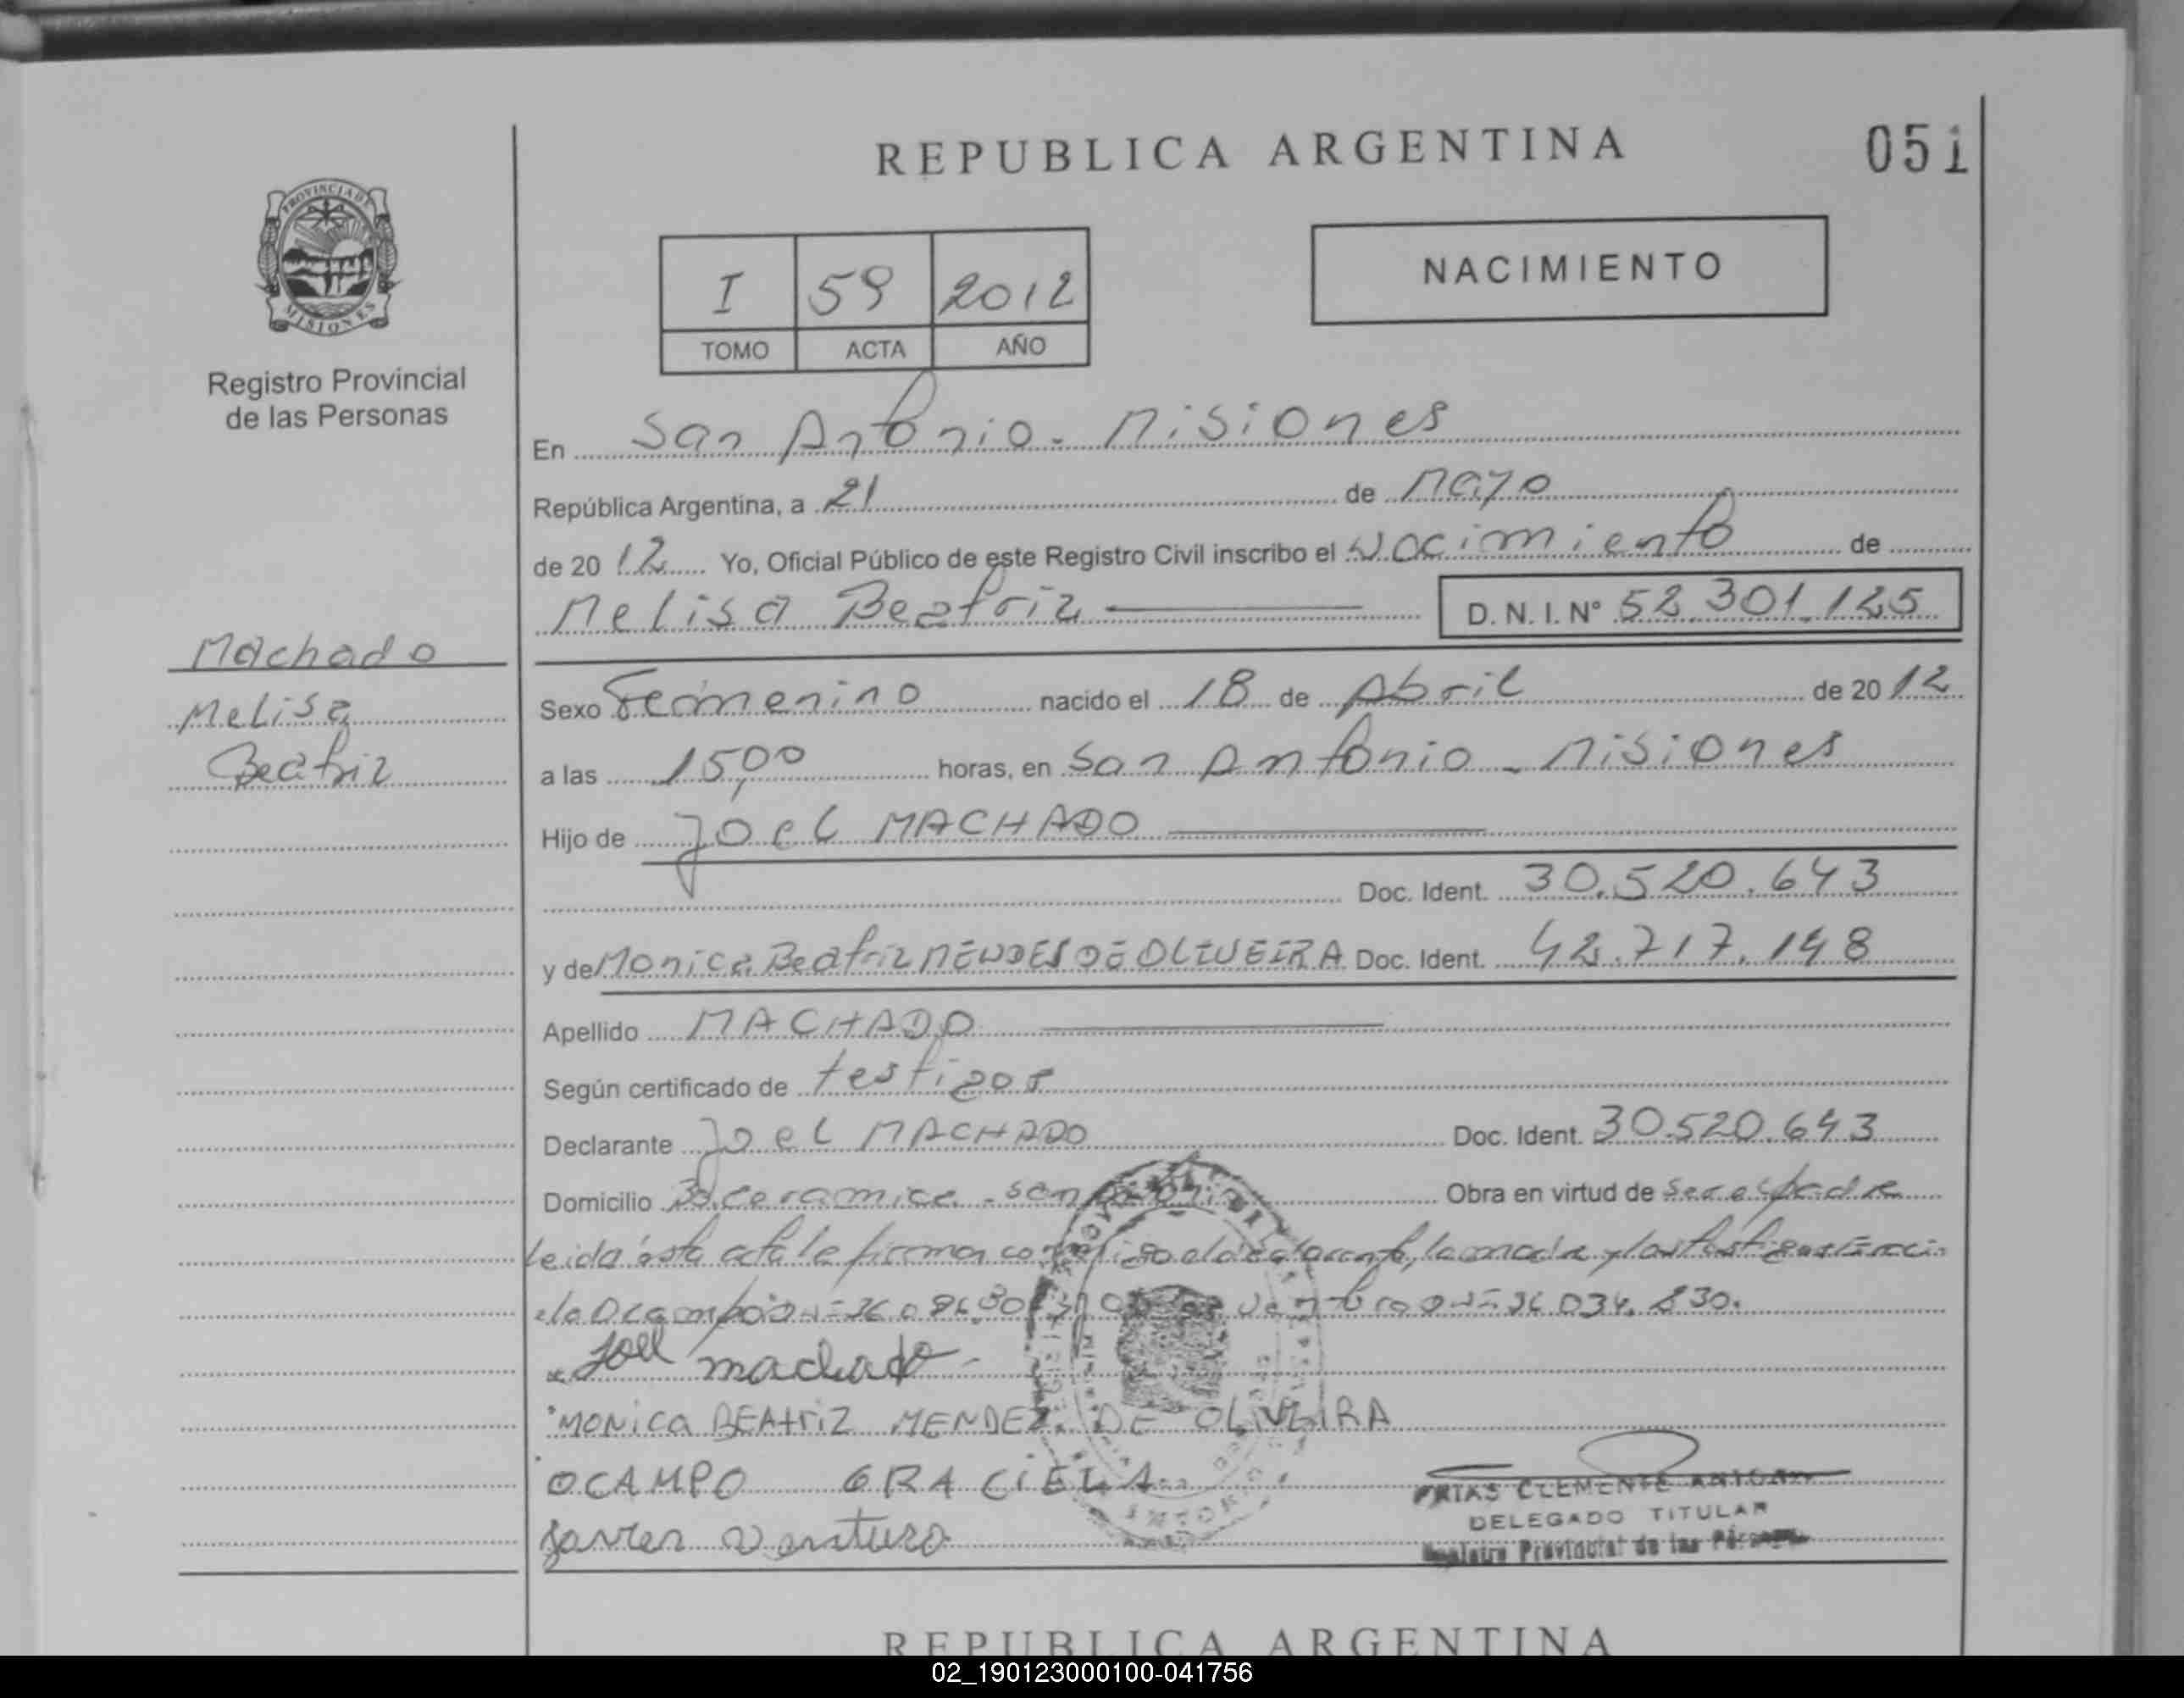 REPUBLICA ARGENTINA
051
PROVINCIA DE
MISIONES
Registro Provincial
de las Personas
I 59 2012
TOMO ACTA AÑO
NACIMIENTO
En San Antonio - Misiones
República Argentina, a 21 de Mayo
de 20 12 Yo, Oficial Público de este Registro Civil inscribo el Nacimiento de
Melisa Beatriz D. N. I. N° 52.301.125
Machado
Melisa
Beatriz
Sexo Femenino nacido el 18 de Abril de 20 12
a las 15,00 horas, en San Antonio - Misiones
Hijo de Joel MACHADO
Doc. Ident. 30.520.643
y de Monica Beatriz MENDES DE OLIVEIRA Doc. Ident. 42.717.148
Apellido MACHADO
Según certificado de testigos
Declarante Joel MACHADO Doc. Ident. 30.520.643
Domicilio Bo. ceramica - san Obra en virtud de ser el padre
Leida esta acta la firman conmigo el declarante, la madre y los testigos
Ocampo
Joel machado
MONICA BEAtriZ MENDEZ DE OLIVEIRA
OCAMPO GRACIELA
Javier Ventura
FRIAS CLEMENTE
DELEGADO TITULAR
Registro Provincial de las Personas
REPUBLICA ARGENTINA
02_190123000100-041756